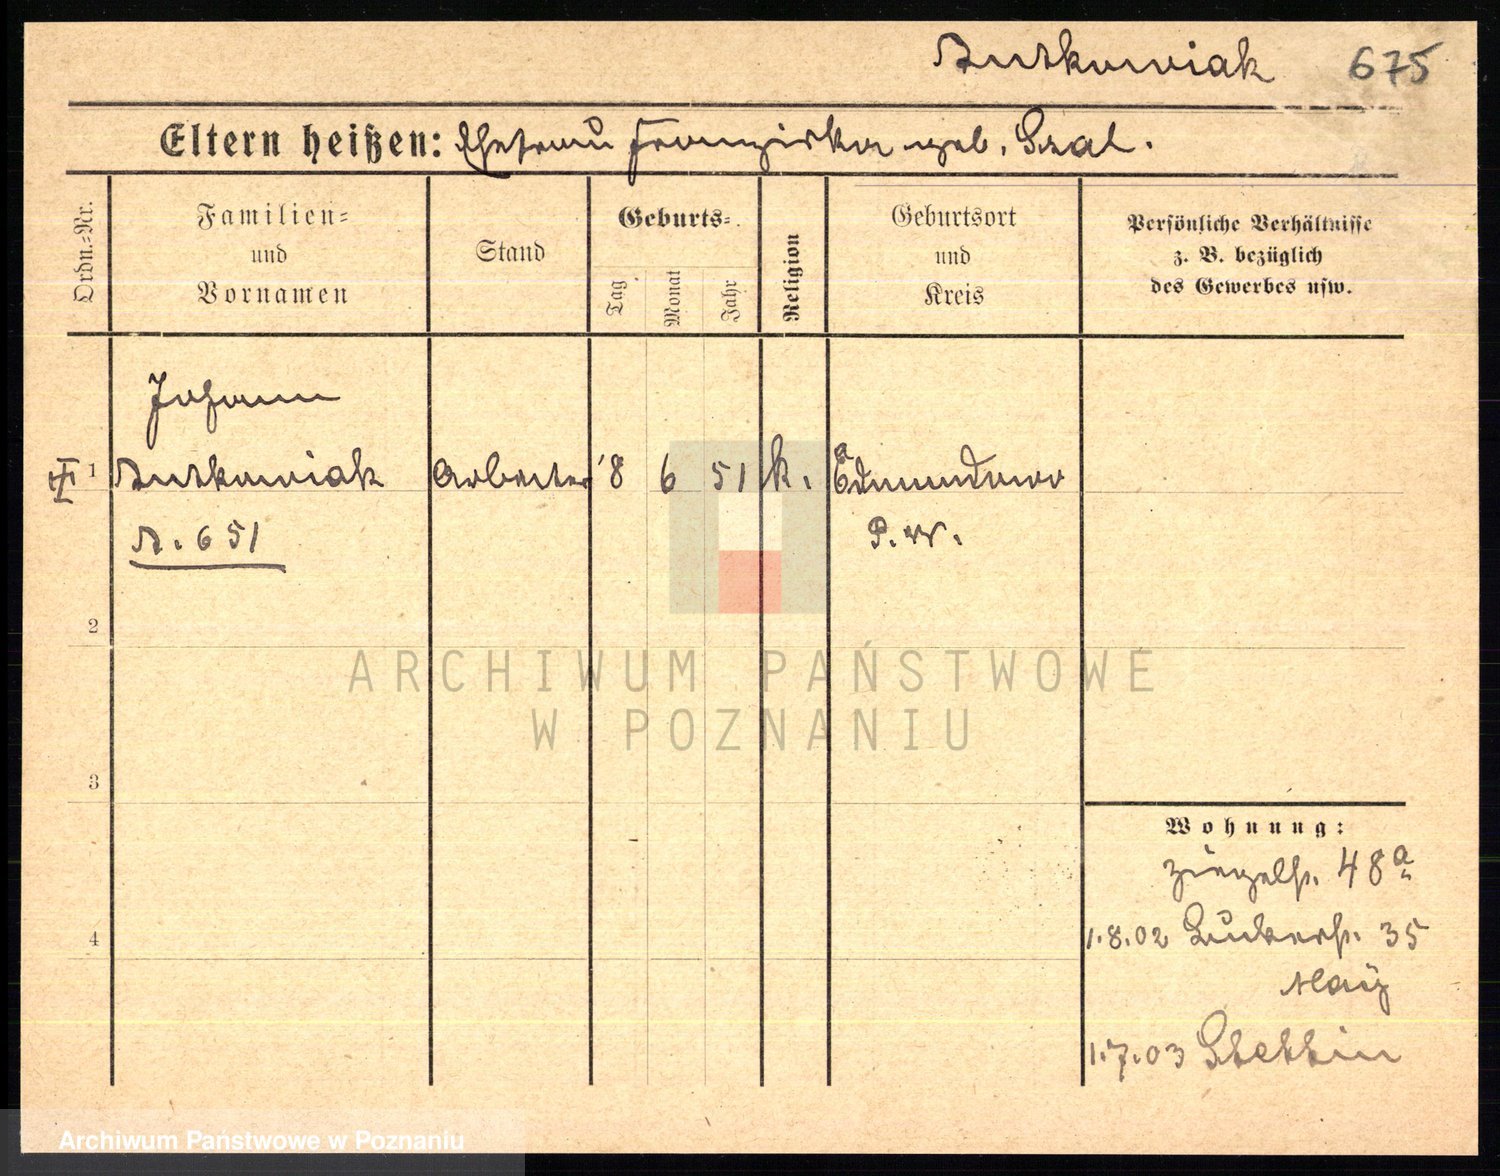 675
Eltern heißen: Ehefrau Franziska geb. Szal.
Ordn.=Nr.
Familien=
und
Vornamen
Stand
Geburts=
Tag
Monat
Jahr
Religion
Geburtsort
und
Kreis
Persönliche Verhältnisse
z. B. bezüglich
des Gewerbes usw.
Johann
1 Arbeiter 8 6 51 k. Edmundowo
651
P. W.
2
ARCHIWUM PAŃSTWOWE
W POZNANIU
3
Wohnung:
Ziegelstr. 48a
4
1.8.02 35
1.7.03 Stettin
Archiwum Państwowe w Poznaniu